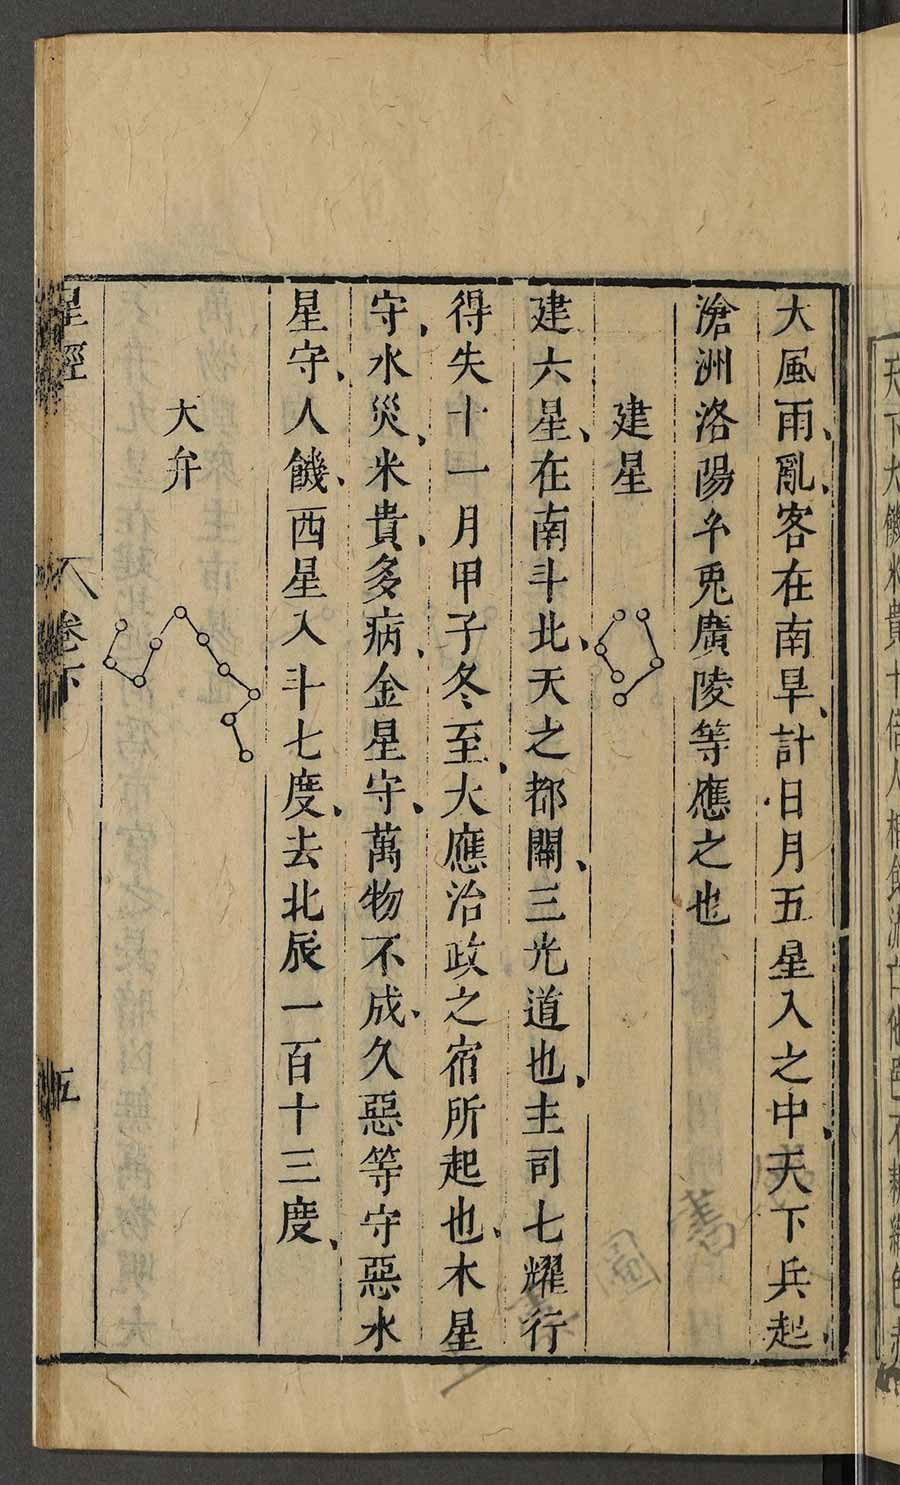 大風雨亂客在南旱計日月五星入之中天下兵起
滄洲洛陽午兎廣陵等應之也
建星
建六星在南斗北天之都關三光道也主司七耀行
得失十一月甲子冬至大應治政之宿所起也木星
守水災米貴多病金星守萬物不成久惡等守惡水
星守人饑西星入斗七度去北辰一百十三度
大弁
星經 卷下 五